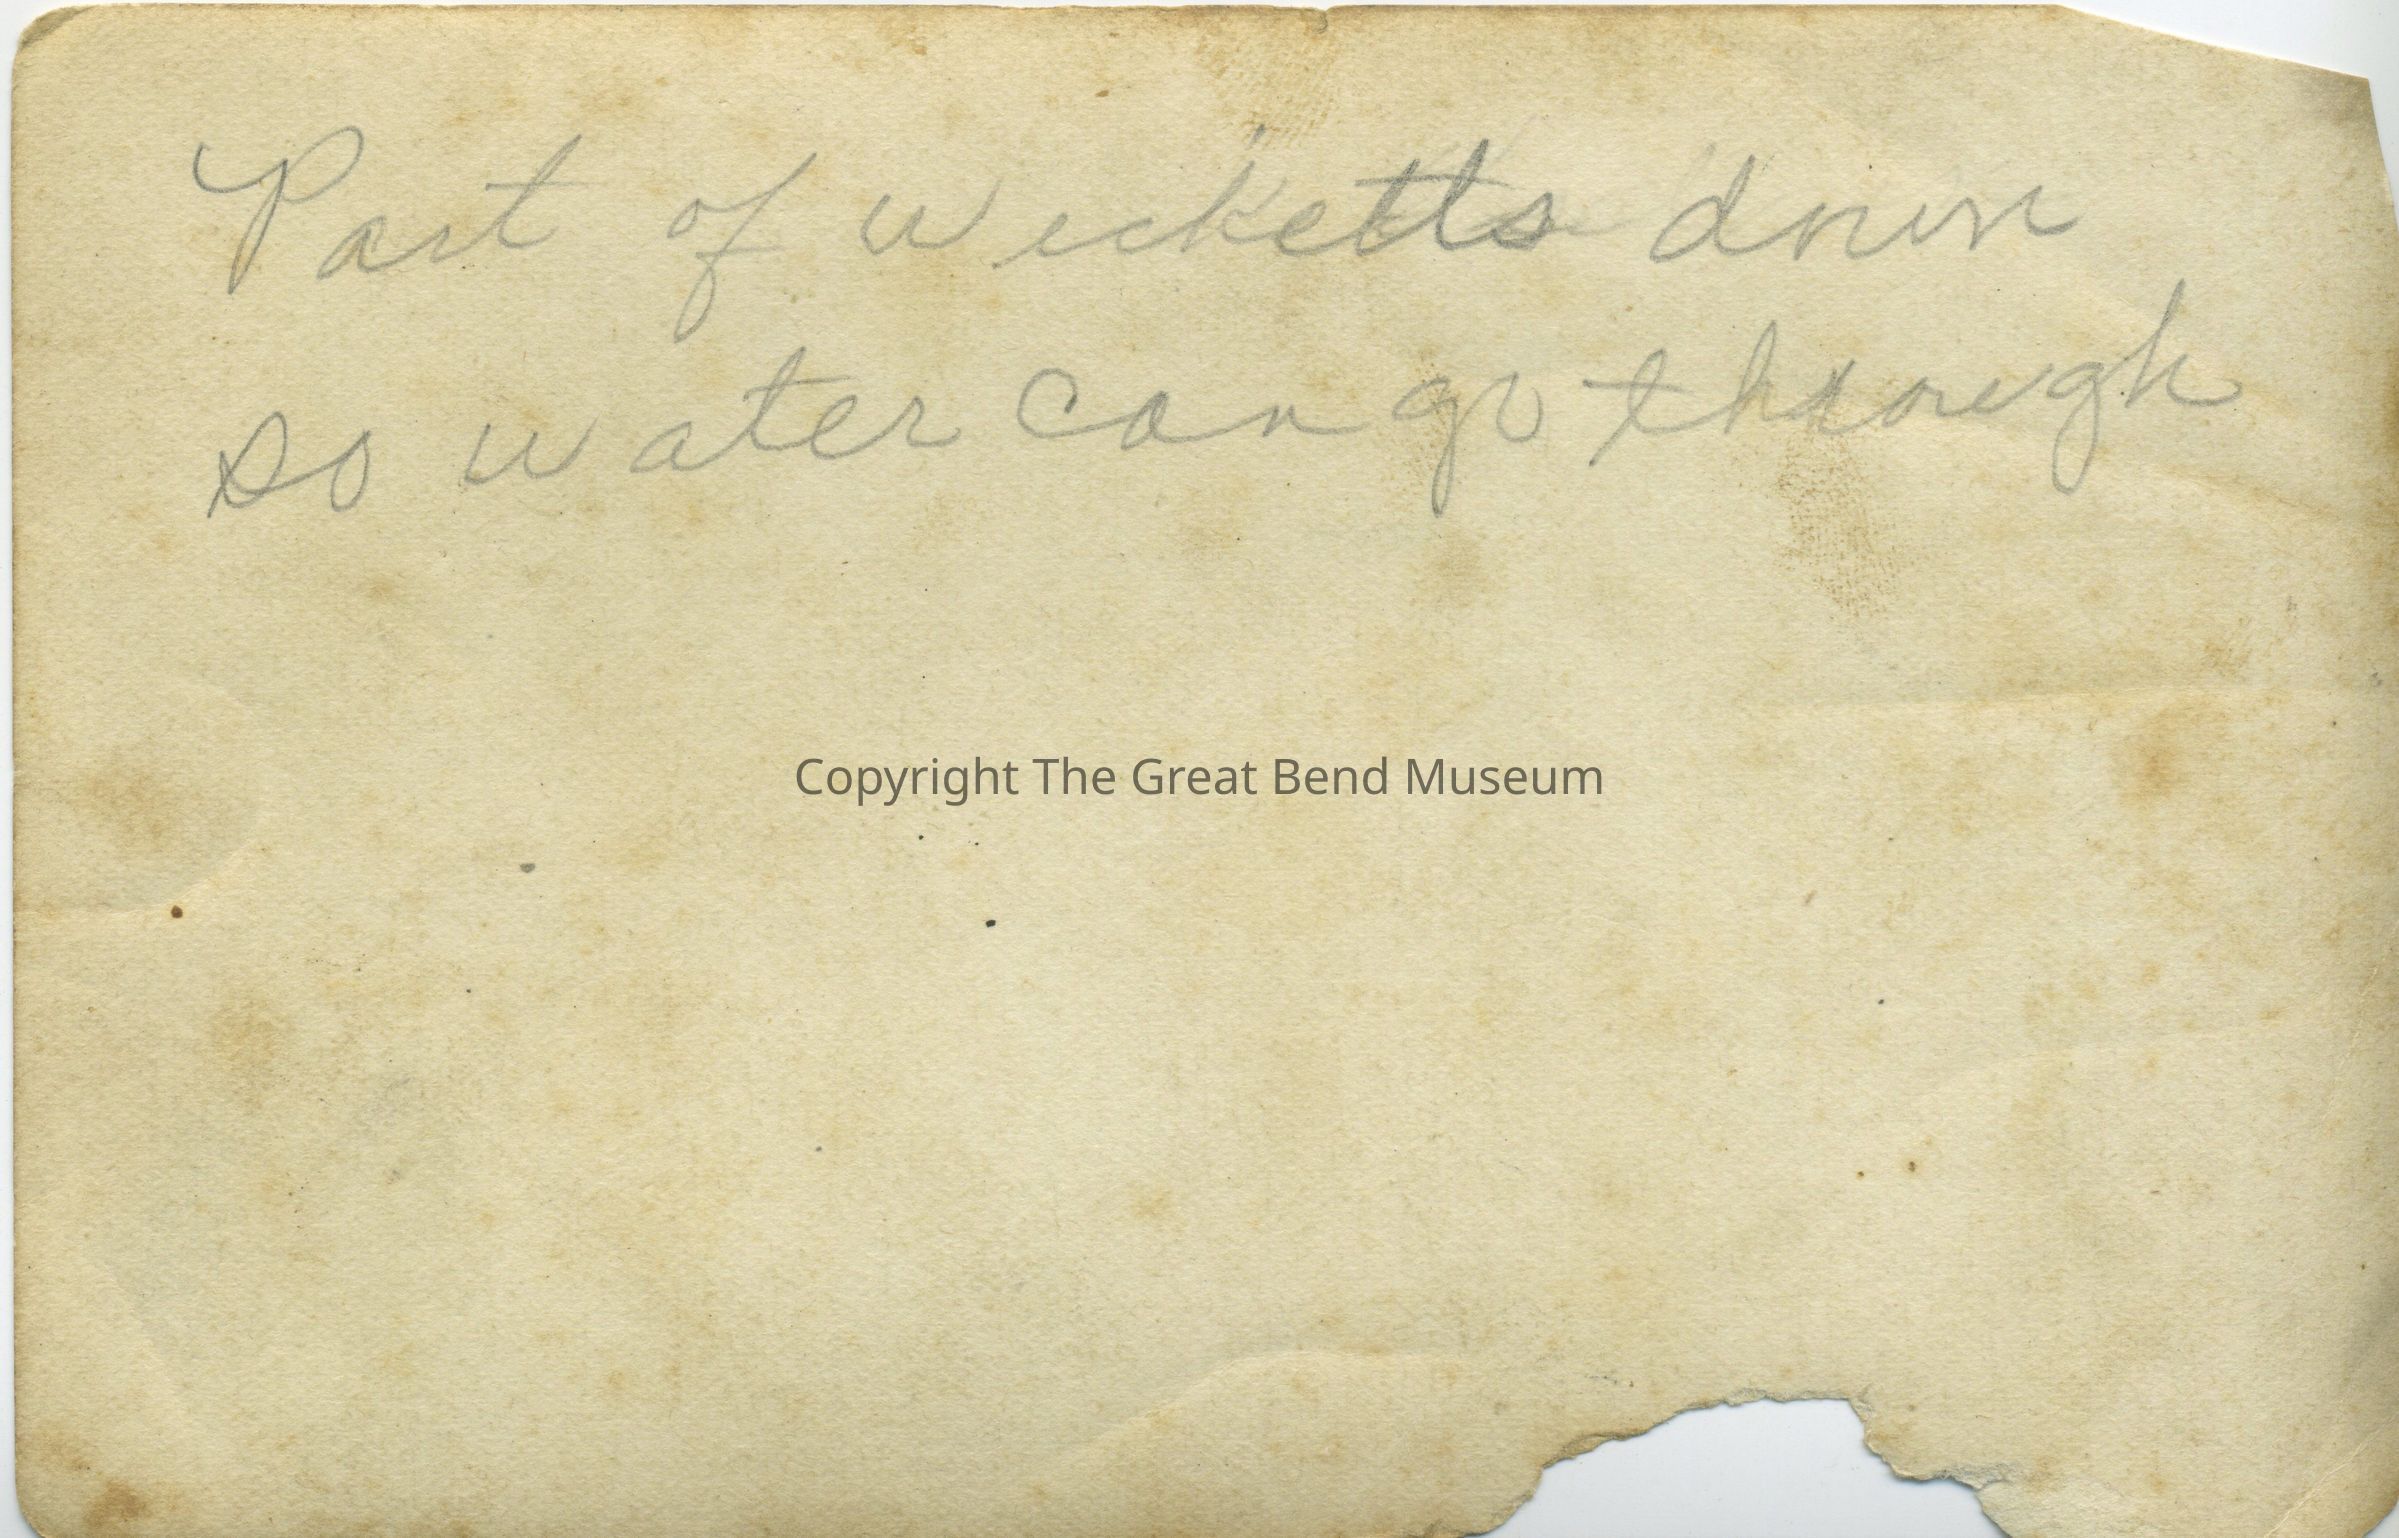 Part of wicketts down
so water can go through
Copyright The Great Bend Museum